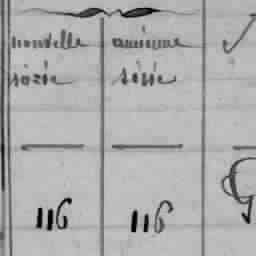 nouvelle ancienne
série série
116 116
G